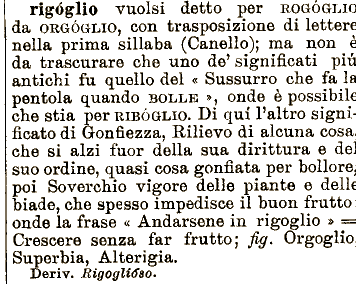 rigóglio vuolsi detto per ROGÓGLIO
da ORGÓGLIO, con trasposizione di lettere
nella prima sillaba (Canello); ma non è
da trascurare che uno de' significati più
antichi fu quello del « Sussurro che fa la
pentola quando BOLLE », onde è possibile
che stia per RIBÓGLIO. Di quí l'altro signi-
ficato di Gonfiezza, Rilievo di alcuna cosa
che si alzi fuor della sua dirittura e del
suo ordine, quasi cosa gonfiata per bollore,
poi Soverchio vigore delle piante e delle
biade, che spesso impedisce il buon frutto:
onde la frase « Andarsene in rigoglio » =
Crescere senza far frutto; fig. Orgoglio,
Superbia, Alterigia.
Deriv. Rigoglióso.